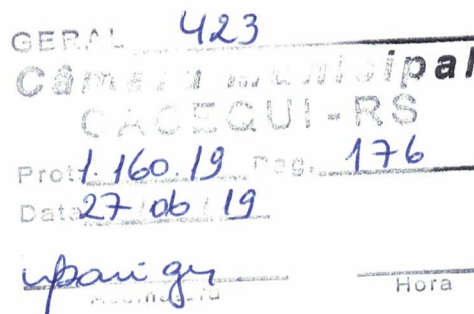 GERAL 423
Câmara Municipal
CACEQUI-RS
Prot. 1.160.19 Pag. 176
Data 27 06 / 19
Assinatura Hora